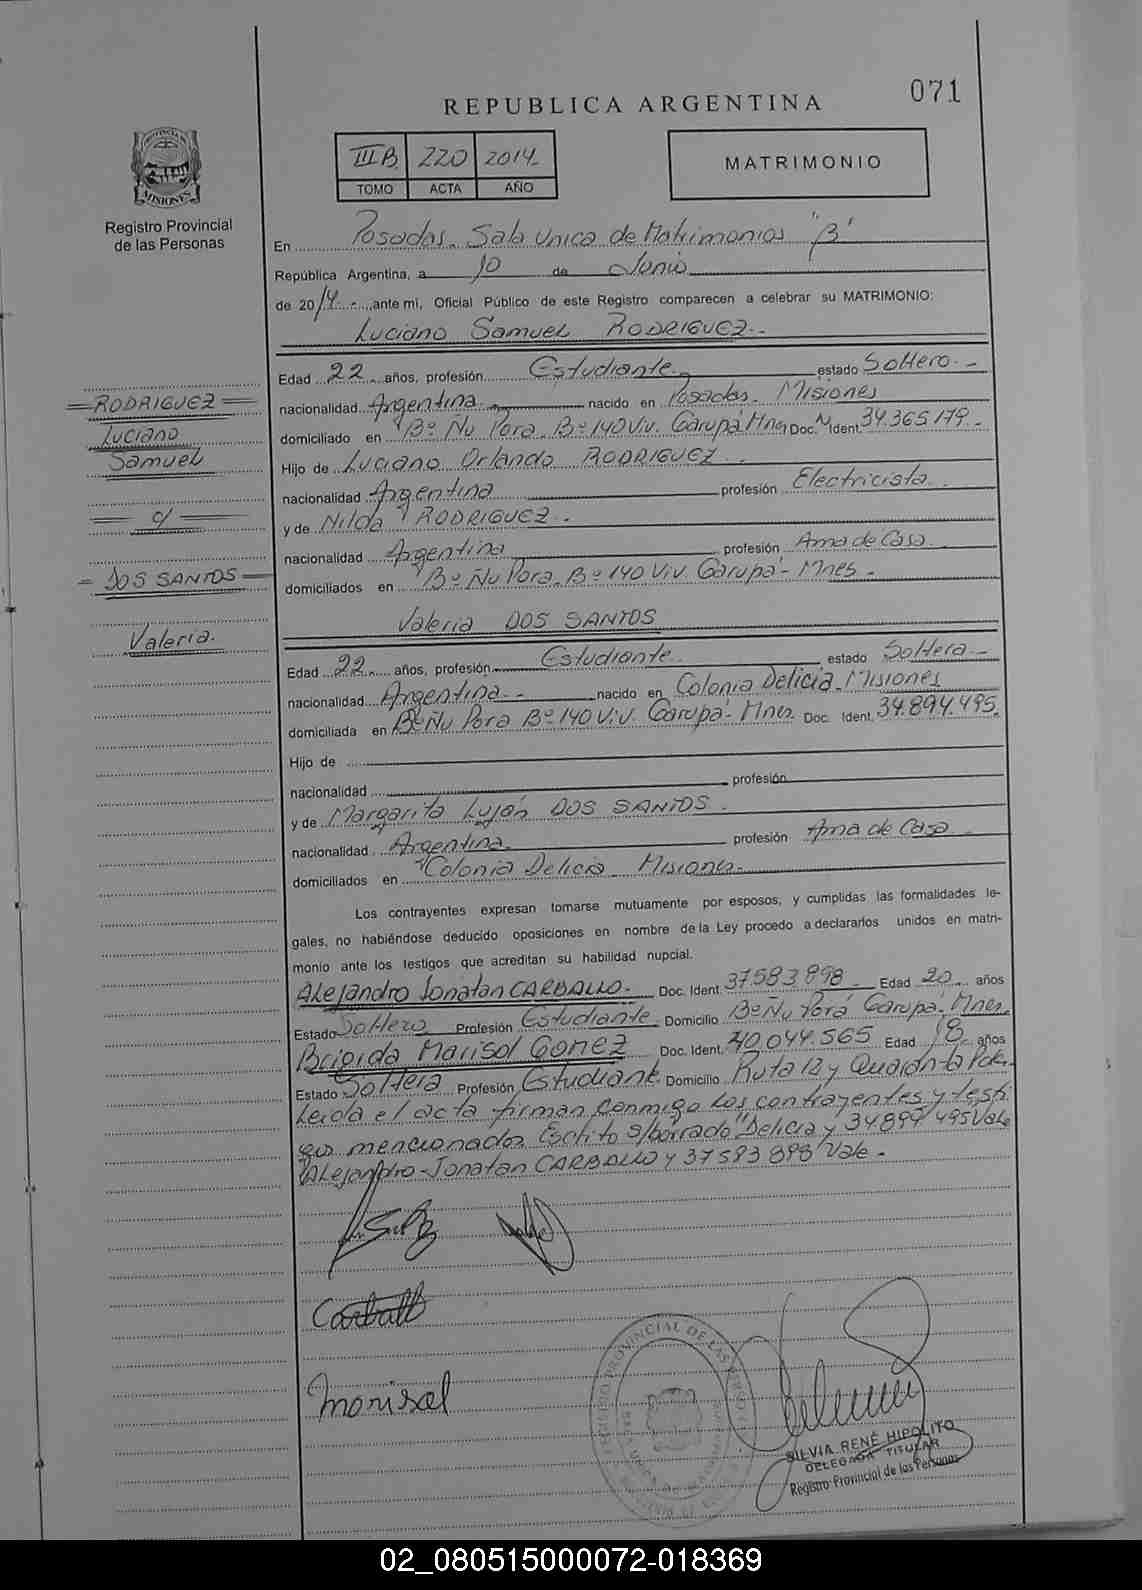 071
REPUBLICA ARGENTINA
III B. 220 2014
TOMO ACTA AÑO
MATRIMONIO
PROVINCIA DE MISIONES
Registro Provincial
de las Personas
En Posadas. Sala Unica de Matrimonios "B"
República Argentina, a 10 de Junio
de 2014 ante mi, Oficial Público de este Registro comparecen a celebrar su MATRIMONIO:
Luciano Samuel RODRIGUEZ
Edad 22 años, profesión Estudiante estado Soltero
nacionalidad Argentina nacido en Posadas. Misiones
domiciliado en Bº Ñu Pora. Bº 140 Viv. Garupá Mnes Doc. Ident. 34.365.179.
Hijo de Luciano Orlando RODRIGUEZ
nacionalidad Argentina profesión Electricista
y de Nilda RODRIGUEZ
nacionalidad Argentina profesión Ama de Casa
domiciliados en Bº Ñu Pora. Bº 140 Viv. Garupá - Mnes -
Valeria DOS SANTOS
Edad 22 años, profesión Estudiante estado Soltera
nacionalidad Argentina nacido en Colonia Delicia. Misiones
domiciliada en Bº Ñu Pora Bº 140 Viv. Garupá - Mnes Doc. Ident. 34.894.495.
Hijo de
nacionalidad profesión
y de Margarita Luján DOS SANTOS
nacionalidad Argentina profesión Ama de Casa
domiciliados en Colonia Delicia Misiones
Los contrayentes expresan tomarse mutuamente por esposos, y cumplidas las formalidades le-
gales, no habiéndose deducido oposiciones en nombre de la Ley procedo a declararlos unidos en matri-
monio ante los testigos que acreditan su habilidad nupcial.
Alejandro Jonatan CARBALLO. Doc. Ident. 37583898 Edad 20 años
Estado Soltero Profesión Estudiante Domicilio Bº Ñu Porá Garupá. Mnes.
Brigida Marisol Gomez Doc. Ident. 40.044.565 Edad 18 años
Estado Soltera Profesión Estudiante Domicilio Ruta 12 y Quaranta Pdas.
Leida el acta firman conmigo los contrayentes y testi
gos mencionados. Escrito s/borrado "Delicia y 34894495 Vale
"Alejandro-Jonatan CARBALLO y 37583898 Vale -
RODRIGUEZ
Luciano
Samuel
c/
DOS SANTOS
Valeria.
Carball
Marisol
REGISTRO PROVINCIAL DE LAS PERSONAS
SILVIA RENÉ HIPOLITO
DELEGADA TITULAR
Registro Provincial de las Personas
02_080515000072-018369